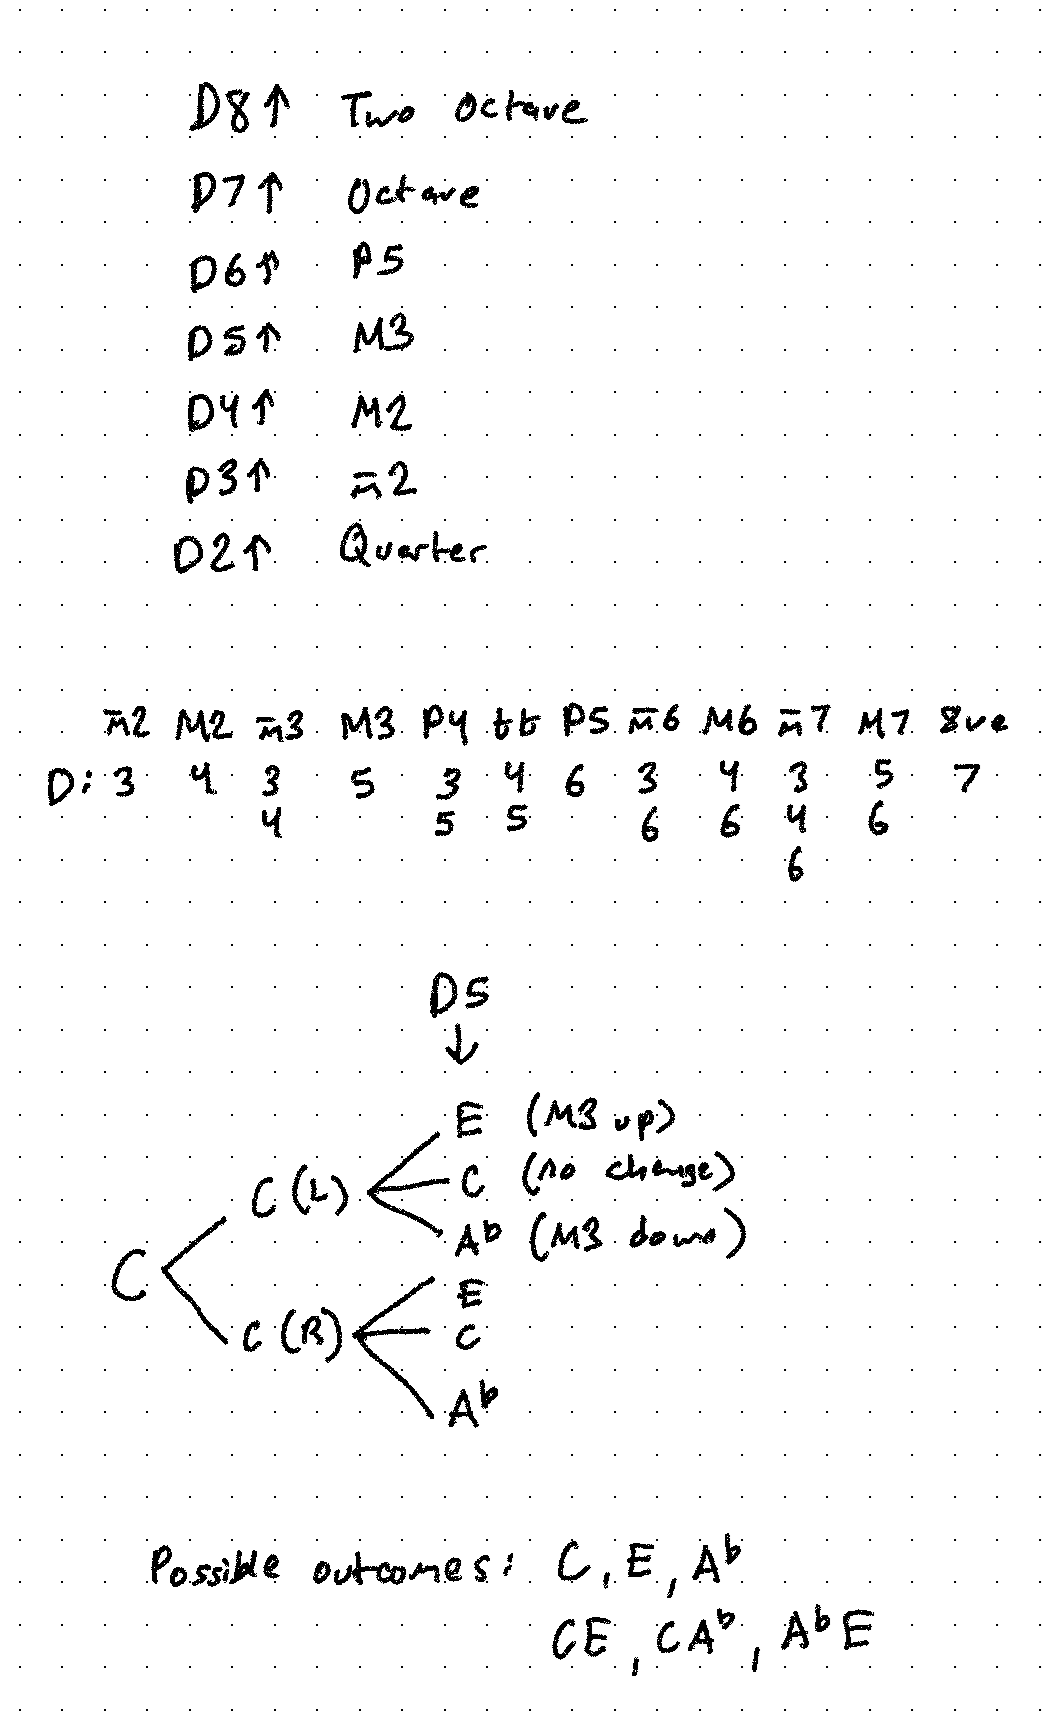 D8↑ Two Octave
D7↑ Octave
D6↑ P5
D5↑ M3
D4↑ M2
D3↑ m̄2
D2↑ Quarter
m̄2 M2 m̄3 M3 P4 tt P5 m̄6 M6 m̄7 M7 8ve
D: 3 4 3 5 3 4 6 3 4 3 5 7
4 5 5 6 6 4 6
6
D5
↓
E (M3 up)
C (L) C (no change)
A♭ (M3 down)
C
E
C (R) C
A♭
Possible outcomes: C, E, A♭
CE, CA♭, A♭E